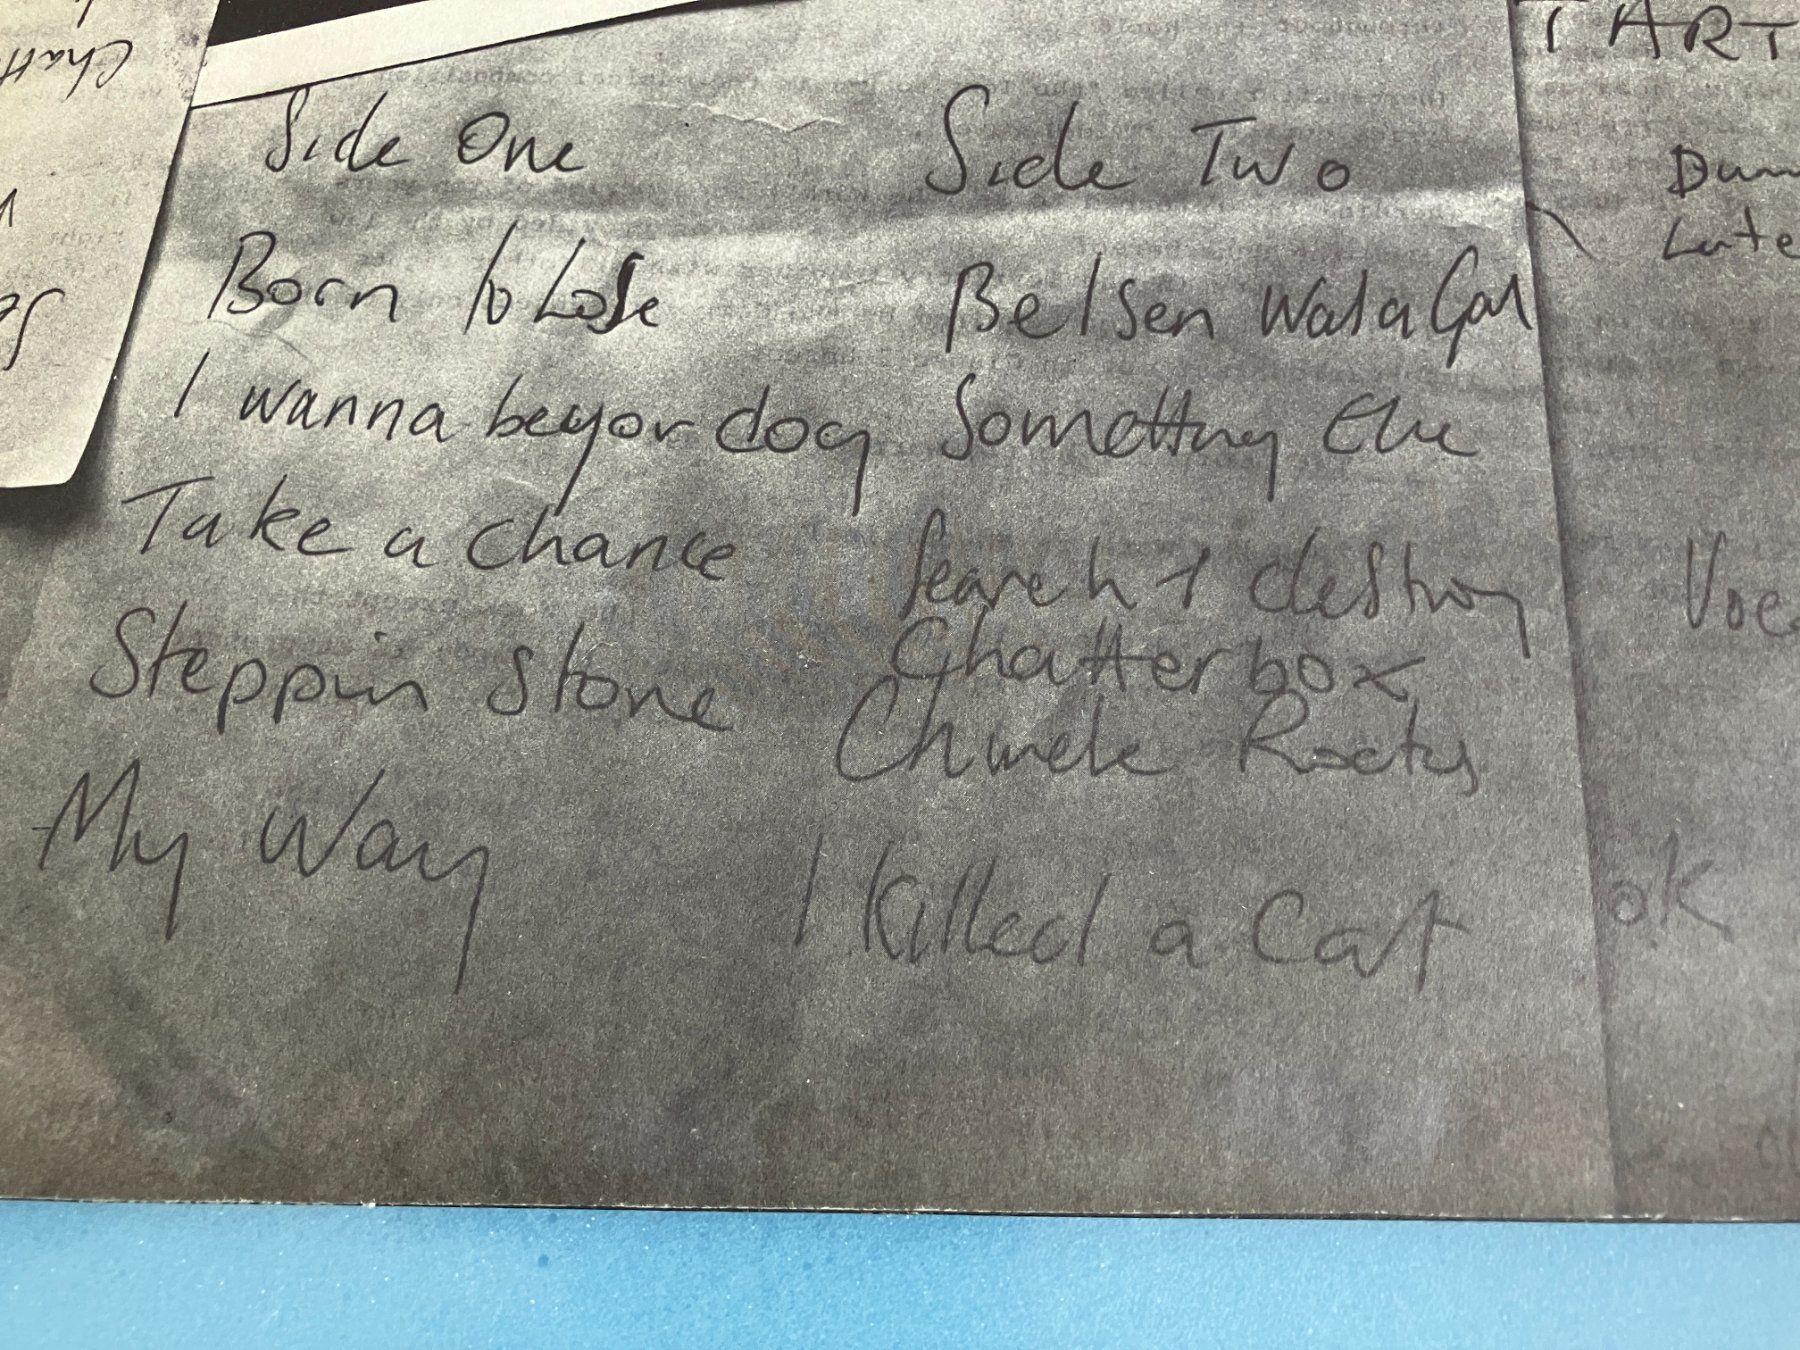 Side One
Born to Lose
I wanna be yor dog
Take a chance
Steppin stone
My Way
Side Two
Belsen was a Gas
Something Else
Search + destroy
Chatterbox
Chinese Rocks
I Killed a Cat
TART
Dum
Late
Voc
ok
Chatt